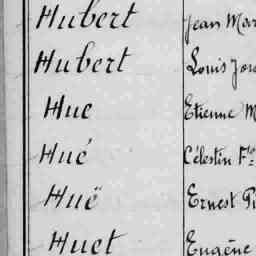 Hubert Jean Mar
Hubert Louis Jos
Hue Etienne M
Hué Célestin Fçs
Huë Ernest Pi
Huet Eugène